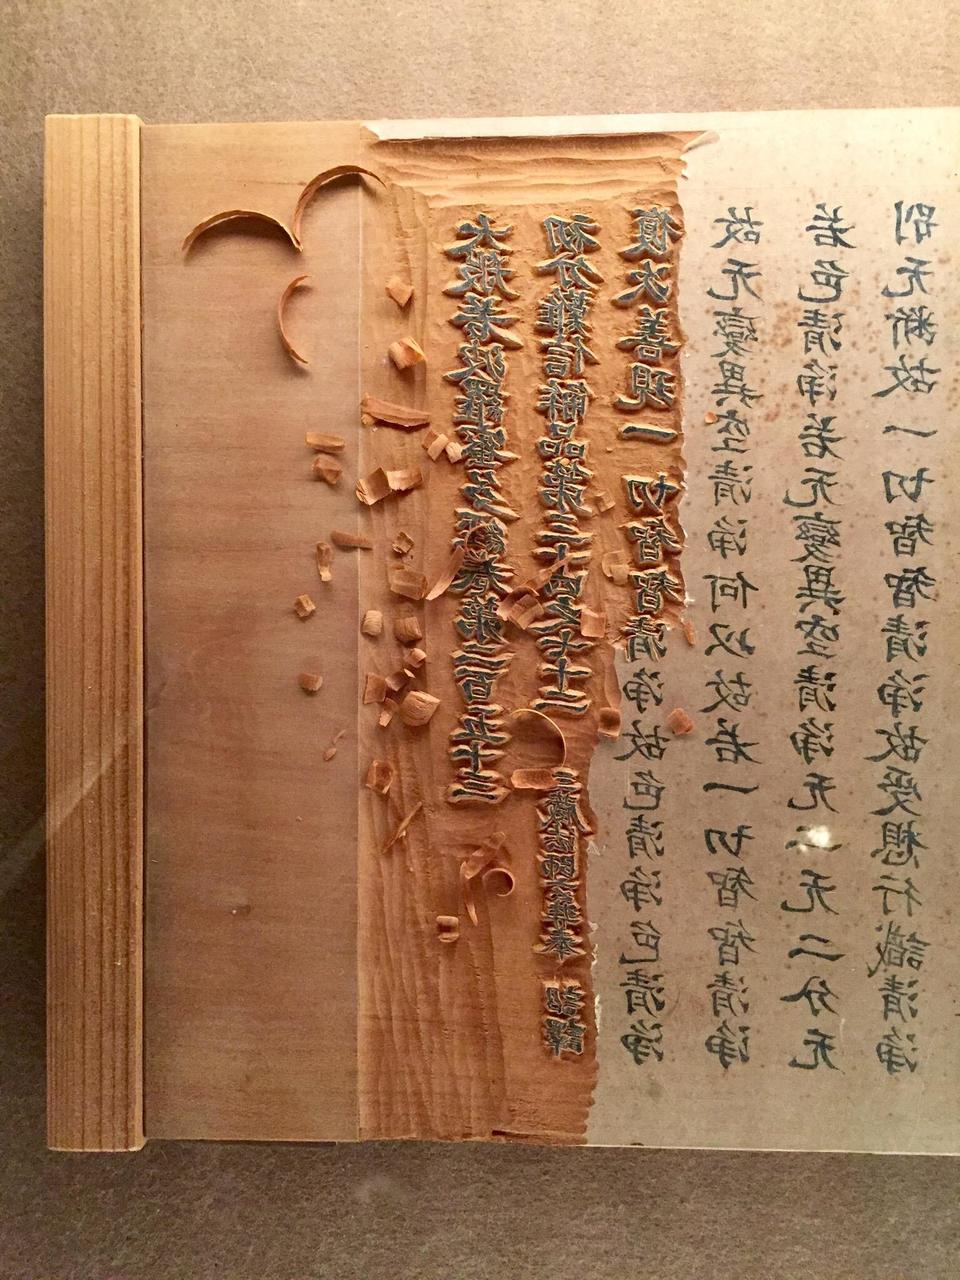 大般若波羅蜜多經卷第二百五十三
初分難信解品第三十四之七十二 三藏法師玄奘奉 詔譯
復次善現一切智智清淨故色清淨色清淨
故无變異空清淨何以故若一切智智清淨
若色清淨若无變異空清淨无二无二分无
別无断故一切智智清淨故受想行識清淨